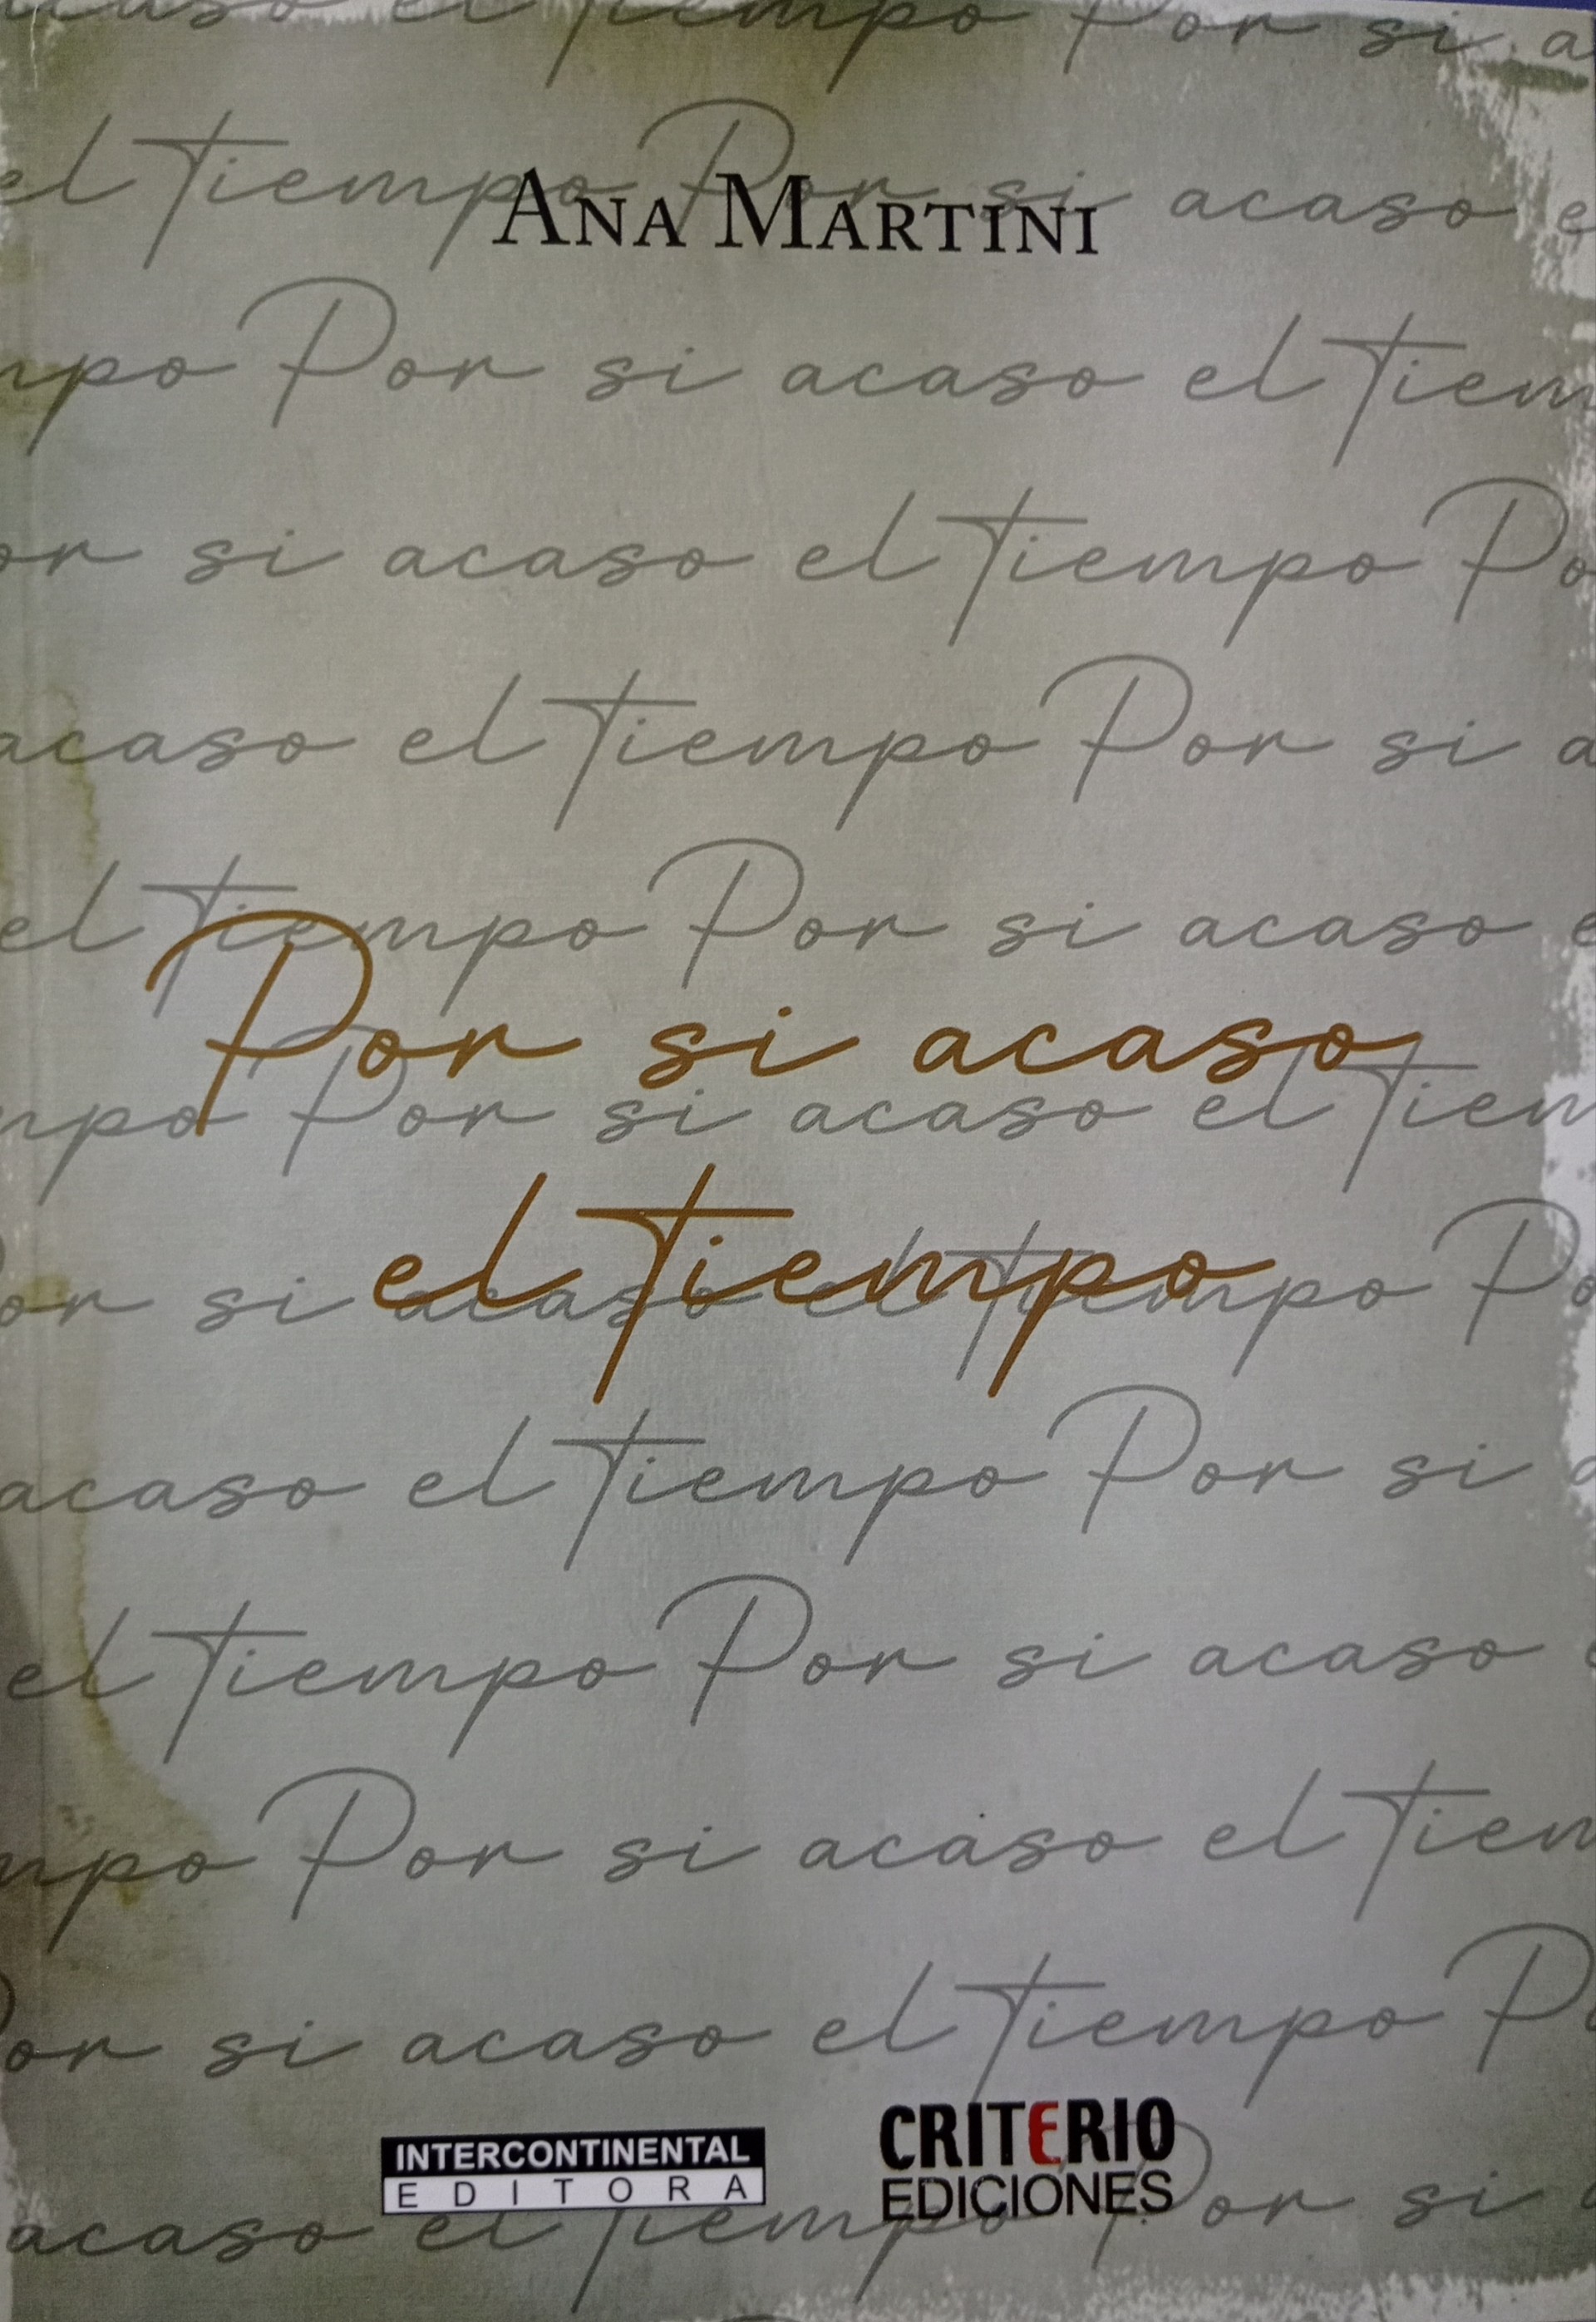 acaso el Tiempo Por si a
el Tiempo Por si acaso e
ANA MARTINI
mpo Por si acaso el Tiem
or si acaso el Tiempo Po
acaso el Tiempo Por si a
el Tiempo Por si acaso e
Por si acaso
mpo Por si acaso el Tiem
el Tiempo
or si acaso el Tiempo Po
acaso el Tiempo Por si a
el Tiempo Por si acaso e
mpo Por si acaso el Tiem
or si acaso el Tiempo Po
INTERCONTINENTAL
EDITORA
CRITERIO
EDICIONES
acaso el Tiempo Por si a